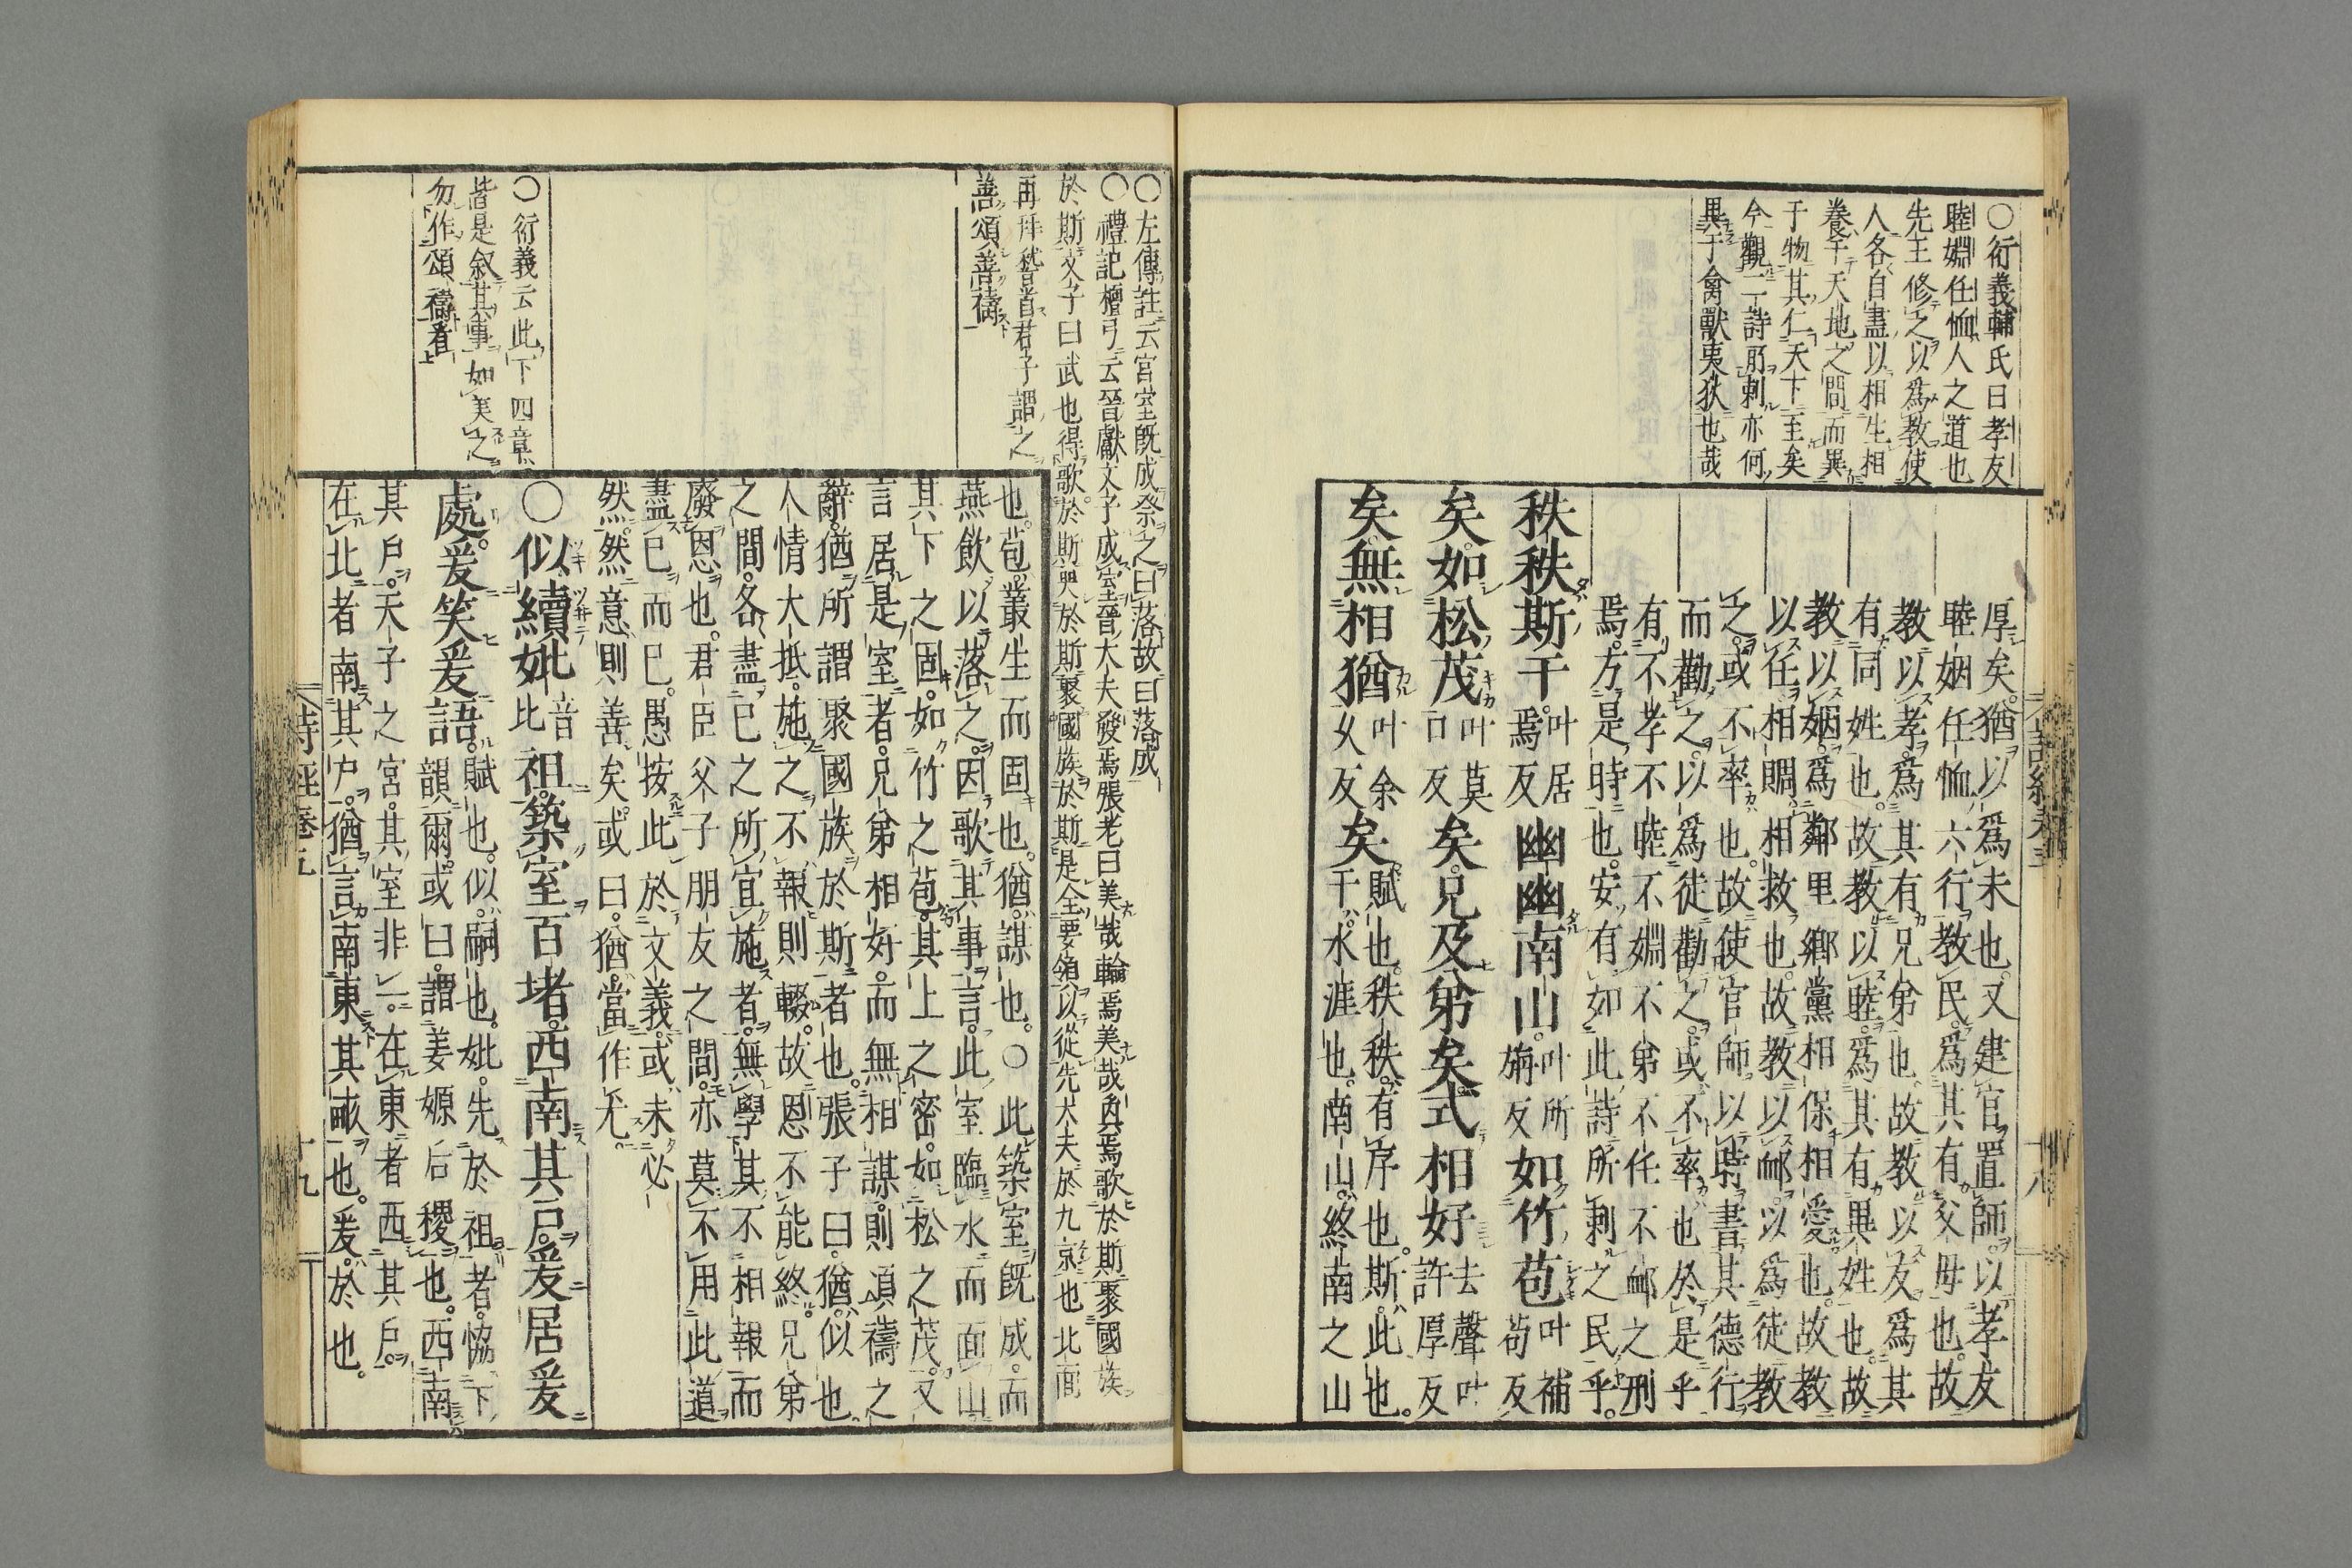 ○衍義輔氏曰孝友
睦婣任恤人之道也
先王修之以爲教使
人各自盡以相生相
養于天地之間而異
于物其仁天下至矣
今觀二詩所刺亦何
異于禽獸夷狄也哉
厚矣。猶以爲未也。又建官置師。以孝友
睦姻任恤六行教民。爲其有父母也。故
教以孝。爲其有兄弟也。故教以友。爲其
有同姓也。故教以睦。爲其有異姓也。故
教以姻。爲鄰里鄉黨相保相愛也。故教
以任。相賙相救也。故教以卹。以爲徒教
之。或不率也。故使官師。以時書其德行
而勸之。以爲徒勸之。或不率也。於是乎
有不孝不睦不婣不弟不任不卹之刑
焉。方是時也。安有如此詩所刺之民乎。
秩秩斯干。叶居焉反幽幽南山。叶所旃反如竹苞叶補苟反
矣。如松茂叶莫口反矣。兄及弟矣。式相好去聲叶許厚反
矣。無相猶叶余久反矣。賦也。秩秩。有序也。斯。此也。干。水涯也。南山。終南之山
十八
○左傳註云宮室既成祭之曰落故曰落成
○禮記檀弓云晉獻文子成室晉大夫發焉張老曰美哉輪焉美哉奐焉歌於斯聚國族
於斯文子曰武也得歌於斯哭於斯聚國族於斯是全要領以從先大夫於九京也北面
再拜稽首君子謂之
善頌善禱
也。苞。叢生而固也。猶。謀也。○此築室既成。而
燕飲以落之。因歌其事。言。此室臨水而面山
其下之固。如竹之苞。其上之密。如松之茂。又
言居是室者。兄弟相好。而無相謀。則頌禱之
辭。猶所謂聚國族於斯者也。張子曰。猶。似也。
人情大抵。施之不報則輟。故恩不能終。兄弟
之間。各盡己之所宜施者。無學其不相報而
廢恩也。君臣父子朋友之間。亦莫不用此道
盡己而已。愚按此於文義。或未必
然。然意則善矣。或曰。猶。當作尤。
○衍義云此下四章
皆是叙其事如美之
勿作頌禱看
○似續妣音比祖。築室百堵。西南其戶。爰居爰
處。爰笑爰語。賦也。似。嗣也。妣。先於祖者。恊下韻爾。或曰。謂姜嫄后稷也。西南
其戶。天子之宮。其室非一。在東者西其戶。
在北者南其戶。猶言南東其畝也。爰。於也。
詩經卷五
十九